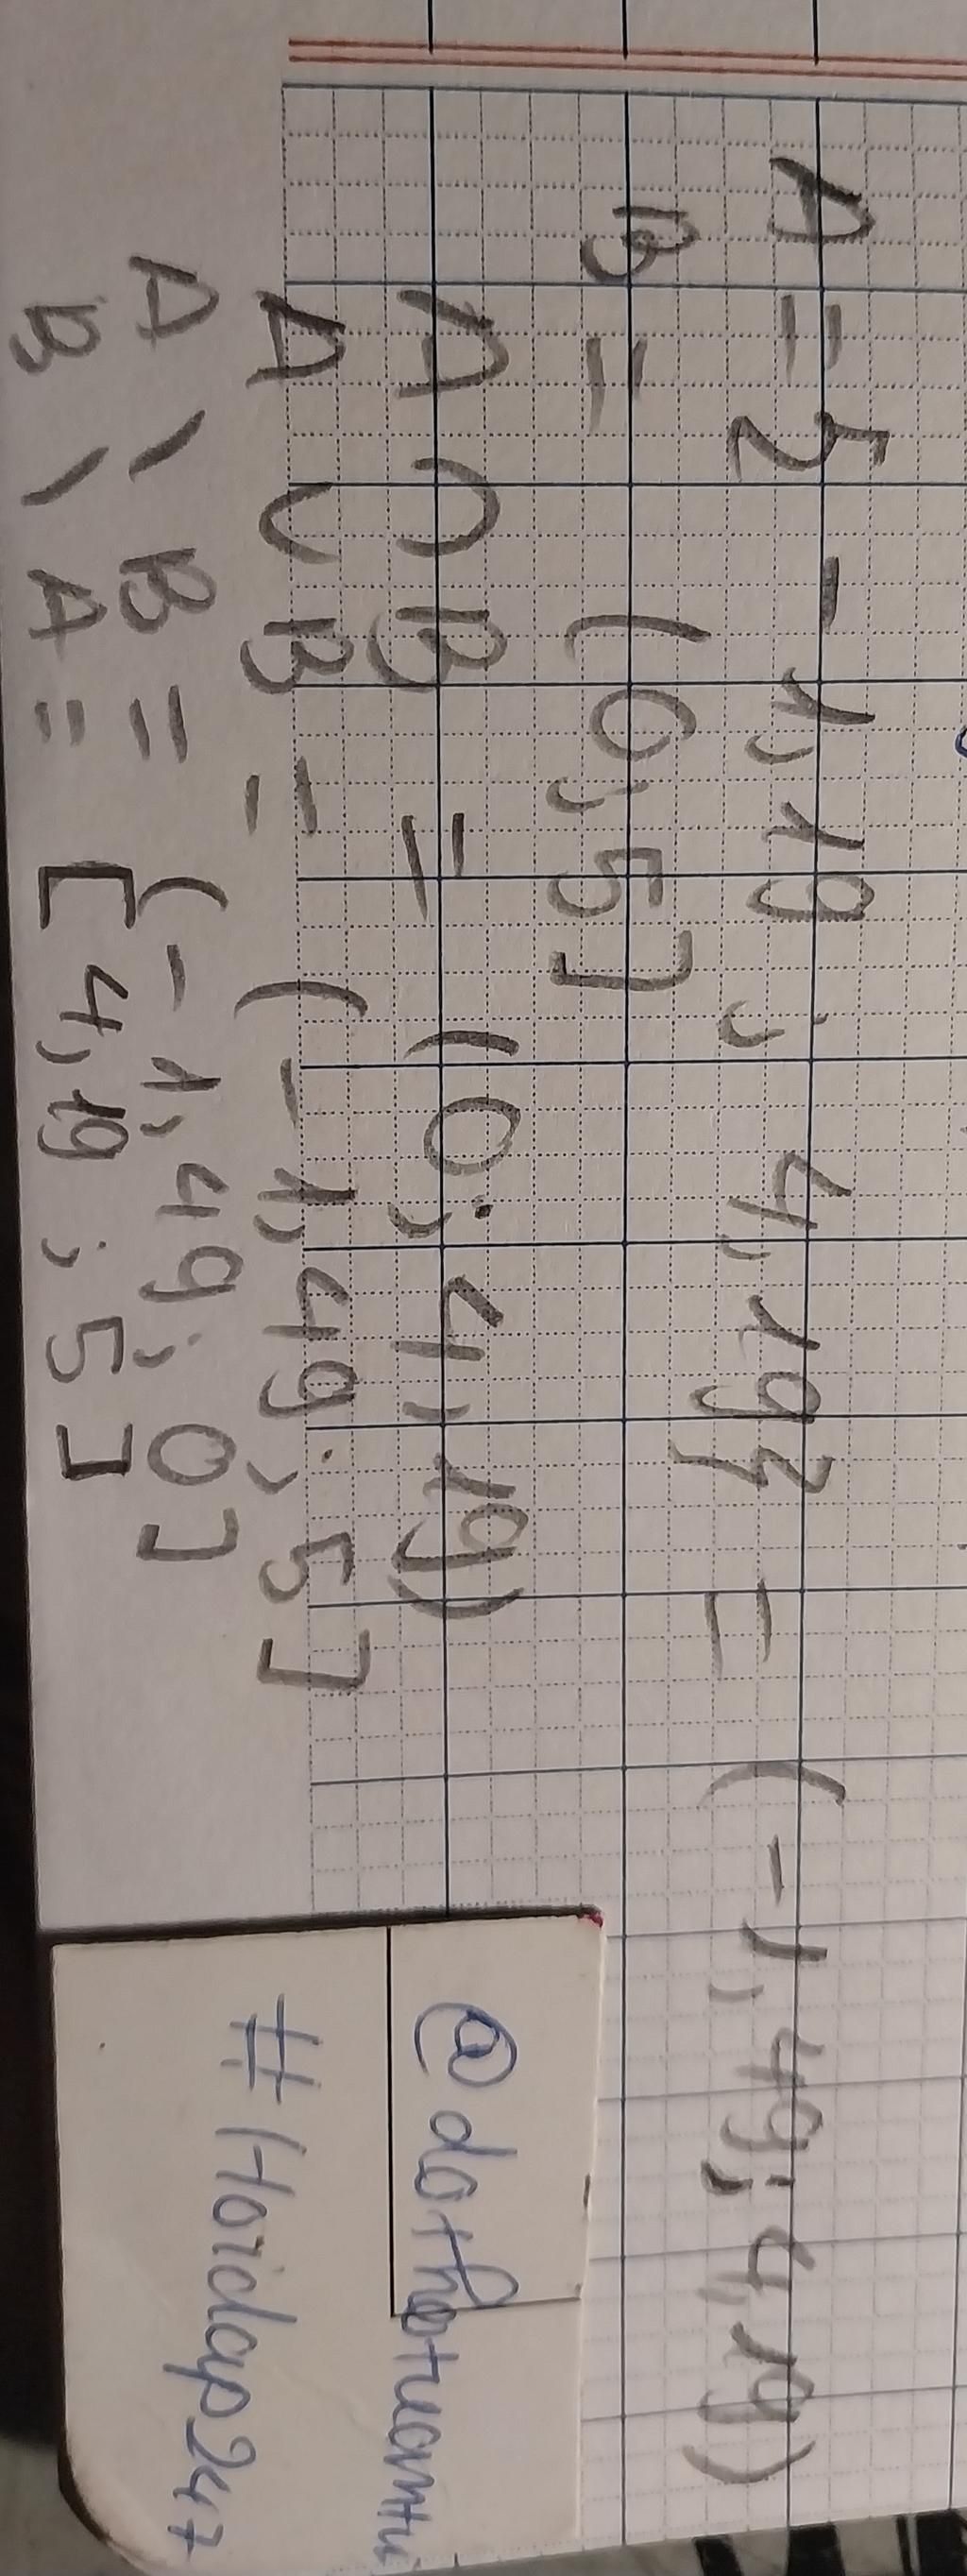 A = { -1,19 ; 4,19 } = (-1,49 ; 4,19)
B = (0; 5]
A ∩ B = (0; 4,19)
A ∪ B = (-1,49; 5]
A \ B = (-1,49; 0]
B \ A = [4,19 ; 5]
#Hoidap247